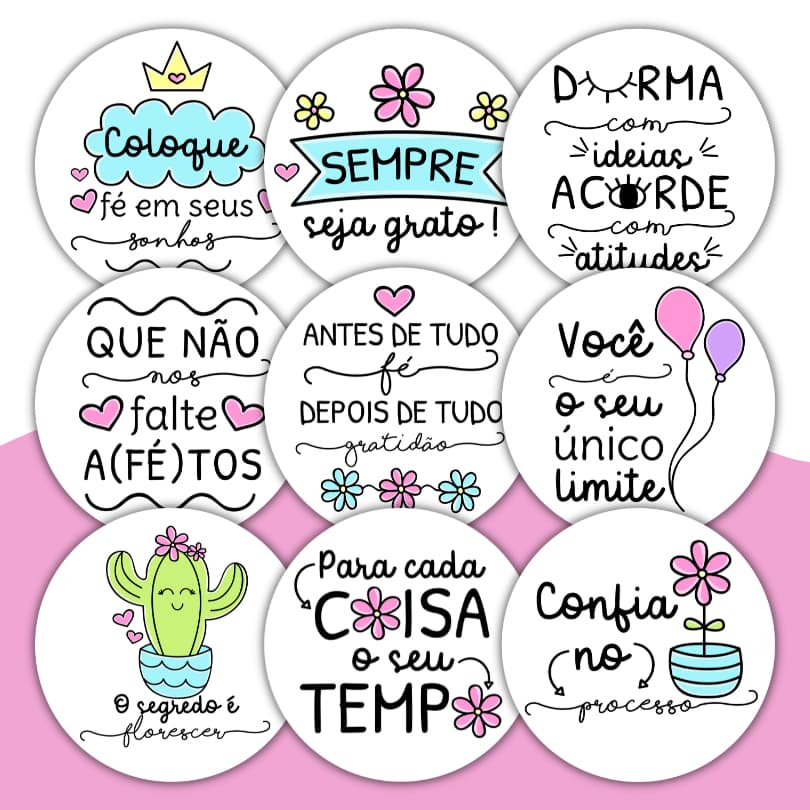 Coloque
fé em seus
sonhos
SEMPRE
seja grato!
DORMA
com
ideias
ACORDE
com
atitudes
QUE NÃO
nos
falte
A(FÉ)TOS
ANTES DE TUDO
fé
DEPOIS DE TUDO
gratidão
Você
é
o seu
único
limite
O segredo é
florescer
Para cada
COISA
o seu
TEMPO
Confia
no
processo